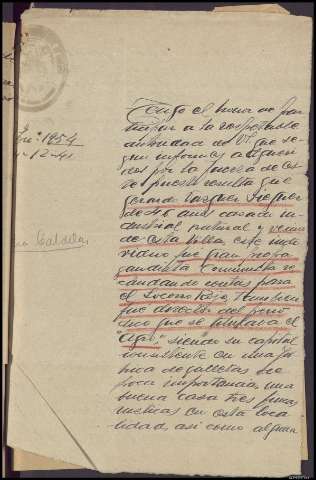 Tengo el honor de par
ticipar a la respetable
autoridad de V. que se
gun informes adquiri
dos por la fuerza de es
te puesto resulta que
Gerardo Vazquez
de 46 años casado in
dustrial natural y vecino
de esta Villa, este indi
viduo fue gran propa
gandista Comunista re
caudando cuotas para
el Socorro Rojo, tambien
fue director del perio
dico que se titulaba el
"Agro" siendo su capital
consistente en una fa
brica de galletas de
poca importancia, una
buena casa tres fincas
rusticas en esta loca
lidad asi como alguna
1954
12-41